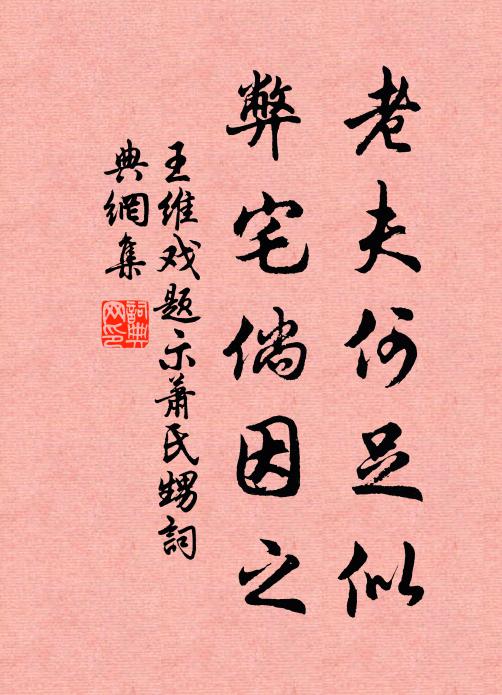 老夫何足似
弊宅倘因之
王维戏题示萧氏甥詞
典網集
詞典網印